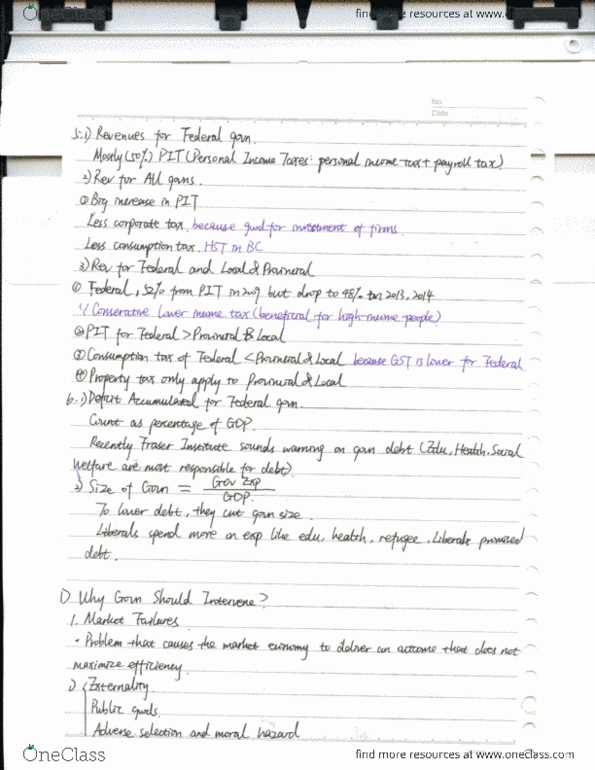 OneClass
find more resources at www.
No.
Date
5.1) Revenues for Federal govn.
Mostly (50%) PIT (Personal Income Taxes: personal income tax + payroll tax)
2) Rev for All govns.
① Big increase in PIT
Less corporate tax. because good for investment of firms.
Less consumption tax. HST in BC
3) Rev for Federal and Local & Provincial
① Federal, 52% from PIT in 2009 but drop to 48% in 2013, 2014
Conserative lower income tax (beneficial for high-income people)
② PIT for Federal > Provincial & Local
③ Consumption tax of Federal < Provincial & Local because GST is lower for Federal
④ Property tax only apply to Provincial & Local
6.1) Deficit Accumulated for Federal govn.
Count as percentage of GDP.
Recently Fraser Institute sounds warning on govn debt (Edu, Health, Social
Welfare are most responsible for debt).
2) Size of Govn = Gov Exp
GDP.
To lower debt, they cut govn size.
Liberals spend more on exp like edu, health, refugee. Liberals promised
debt.
1) Why Govn Should Intervene?
1. Market Failures
• Problem that causes the market economy to deliver an outcome that does not
maximize efficiency.
1) Externality.
Public goods.
Adverse selection and moral hazard
OneClass
find more resources at www.oneclass.com